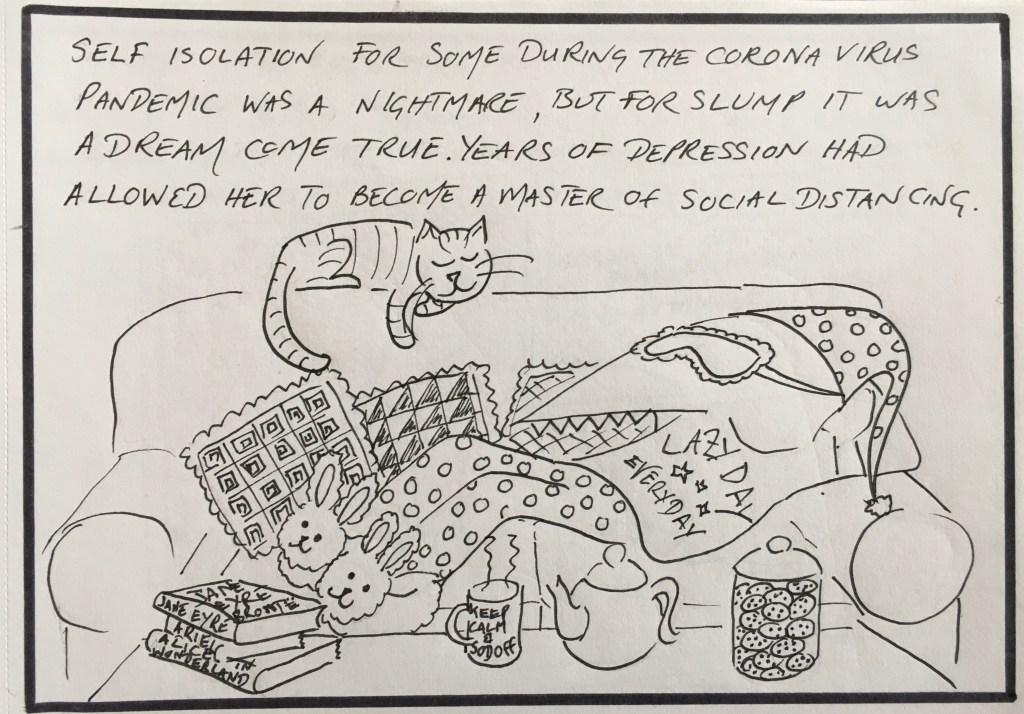 SELF ISOLATION FOR SOME DURING THE CORONA VIRUS
PANDEMIC WAS A NIGHTMARE, BUT FOR SLUMP IT WAS
A DREAM COME TRUE. YEARS OF DEPRESSION HAD
ALLOWED HER TO BECOME A MASTER OF SOCIAL DISTANCING.
LAZY DAY
EVERYDAY
JANE EYRE
ARIEL
ALICE IN
WONDERLAND
KEEP
CALM
&
SOD OFF